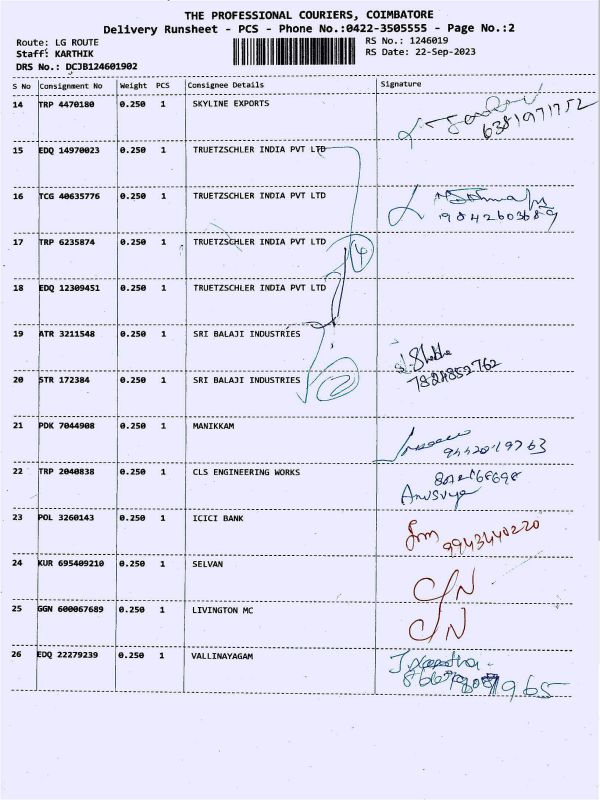 THE PROFESSIONAL COURIERS, COIMBATORE
Delivery Runsheet - PCS - Phone No.:0422-3505555 - Page No.:2
Route: LG ROUTE RS No.: 1246019
Staff: KARTHIK RS Date: 22-Sep-2023
DRS No.: DCJB124601902
S No Consignment No Weight PCS Consignee Details Signature
14 TRP 4470180 0.250 1 SKYLINE EXPORTS
6381971752
15 EDQ 14970023 0.250 1 TRUETZSCHLER INDIA PVT LTD
16 TCG 40635776 0.250 1 TRUETZSCHLER INDIA PVT LTD
9842603689
17 TRP 6235874 0.250 1 TRUETZSCHLER INDIA PVT LTD
4
18 EDQ 12309451 0.250 1 TRUETZSCHLER INDIA PVT LTD
19 ATR 3211548 0.250 1 SRI BALAJI INDUSTRIES
20 STR 172384 0.250 1 SRI BALAJI INDUSTRIES
2
7824852762
21 PDK 7044908 0.250 1 MANIKKAM
9442019763
22 TRP 2040838 0.250 1 CLS ENGINEERING WORKS
Anusuya
23 POL 3260143 0.250 1 ICICI BANK
9943440220
24 KUR 695409210 0.250 1 SELVAN
C/N
25 GGN 600067689 0.250 1 LIVINGTON MC
C/N
26 EDQ 22279239 0.250 1 VALLINAYAGAM